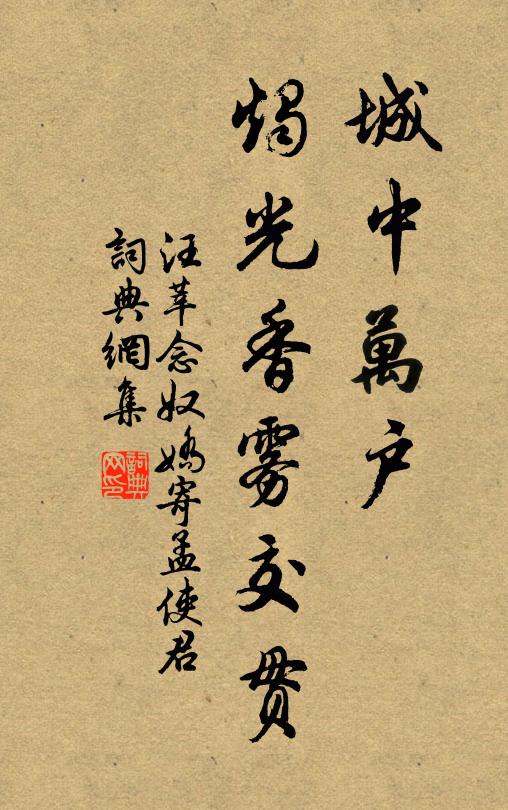 城中萬户
燭光香雾交貫
汪莘念奴嬌寄孟使君
詞典網集
詞典
网印